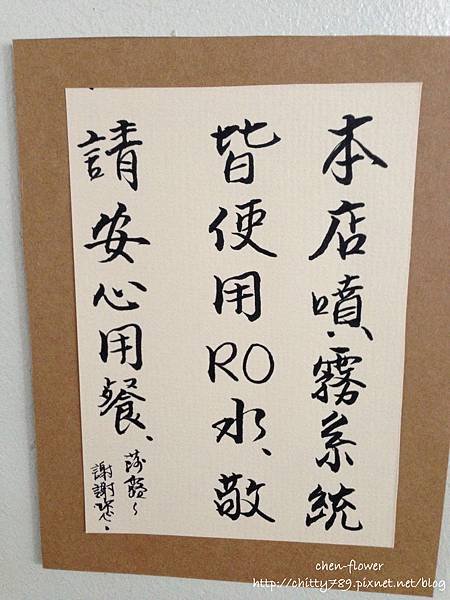 本店噴霧系統
皆使用RO水、敬
請安心用餐、
謝謝您。
chen-flower
http://chitty789.pixnet.net/blog